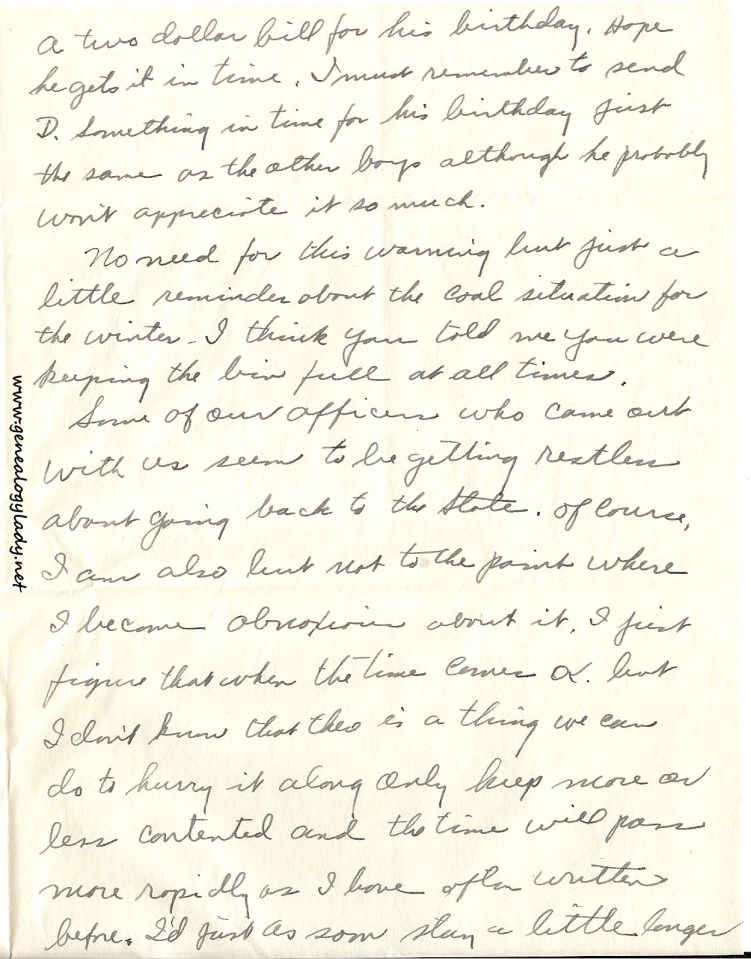 a two dollar bill for his birthday. Hope
he gets it in time. I must remember to send
D. something in time for his birthday just
the same as the other boys although he probably
won't appreciate it so much.
No need for this warning but just a
little reminder about the coal situation for
the winter. I think you told me you were
keeping the bin full at all times.
Some of our officers who came out
with us seem to be getting restless
about going back to the State. Of course,
I am also but not to the point where
I become obnoxious about it. I just
figure that when the time comes O.K. but
I don't know that there is a thing we can
do to hurry it along only keep more or
less contented and the time will pass
more rapidly as I have often written
before. I'd just as soon stay a little longer
www.genealogylady.net